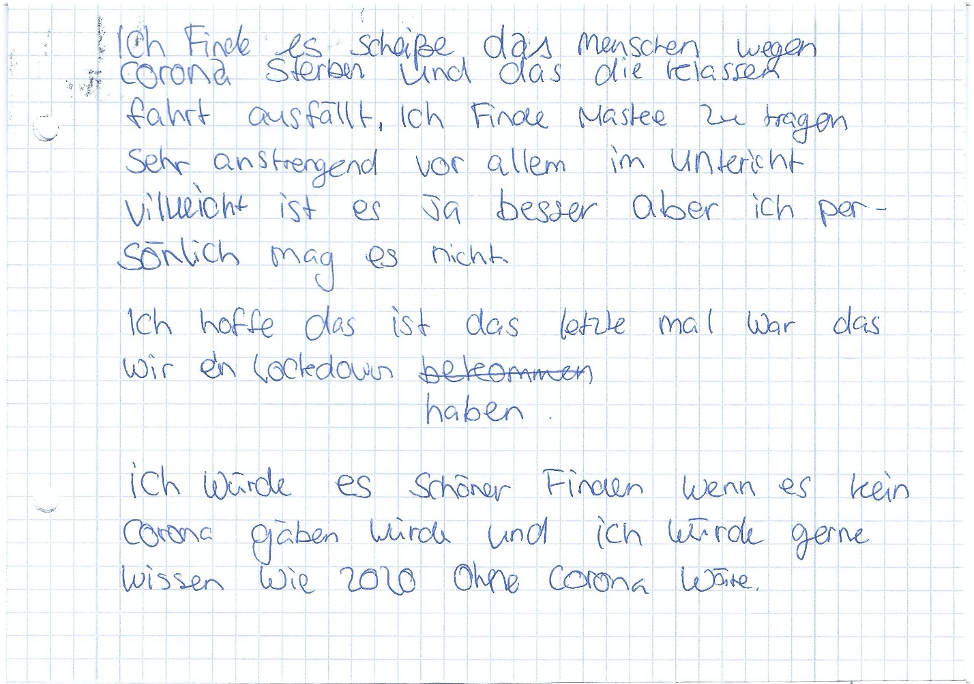 Ich Finde es scheiße das menschen wegen
corona sterben und das die klassen
fahrt ausfällt. Ich Finde Maske zu tragen
sehr anstrengend vor allem im Untericht
villeicht ist es ja besser aber ich per-
sönlich mag es nicht
Ich hoffe das ist das letzte mal war das
wir en Lockdown bekommen
haben.
ich würde es schöner Finden wenn es kein
Corona gäben würde und ich würde gerne
wissen wie 2020 Ohne Corona wäre.